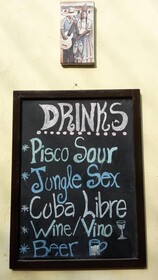 DRINKS
* Pisco Sour
* Jungle Sex
Cuba Libre
* Wine/Vino
* Beer